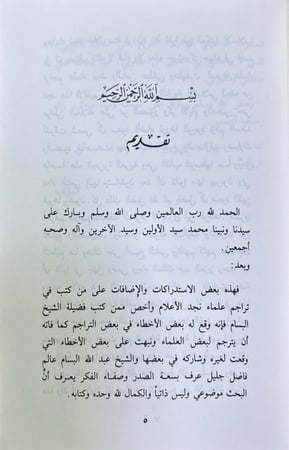 بسم الله الرحمن الرحيم
تقديم
الحمد لله رب العالمين وصلى الله وسلم وبارك على
سيدنا ونبينا محمد سيد الأولين وسيد الآخرين وآله وصحبه
أجمعين.
وبعد:
فهذه بعض الاستدراكات والإضافات على من كتب في
تراجم علماء نجد الأعلام وأخص ممن كتب فضيلة الشيخ
البسام فإنه وقع له بعض الأخطاء في بعض التراجم كما فاته
أن يترجم لبعض العلماء ونبهت على بعض الأخطاء التي
وقعت لغيره وشاركه في بعضها والشيخ عبد الله البسام عالم
فاضل جليل عرف بسعة الصدر وصفاء الفكر يعرف أنَّ
البحث موضوعي وليس ذاتياً والكمال لله وحده وكتابه.
٥